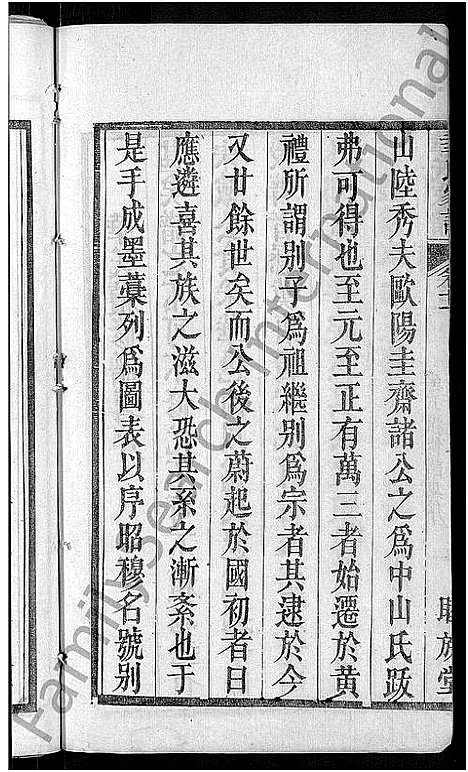 山陸秀夫歐陽圭齋諸公之爲中山氏跋
弗可得也至元至正有萬三者始遷於黃
禮所謂別子爲祖繼別爲宗者其逮於今
又廿餘世矣而公後之蔚起於國初者曰
應遴喜其族之滋大恐其系之漸紊也于
是手成墨藁列爲圖表以序昭穆名號別
FamilySearch International